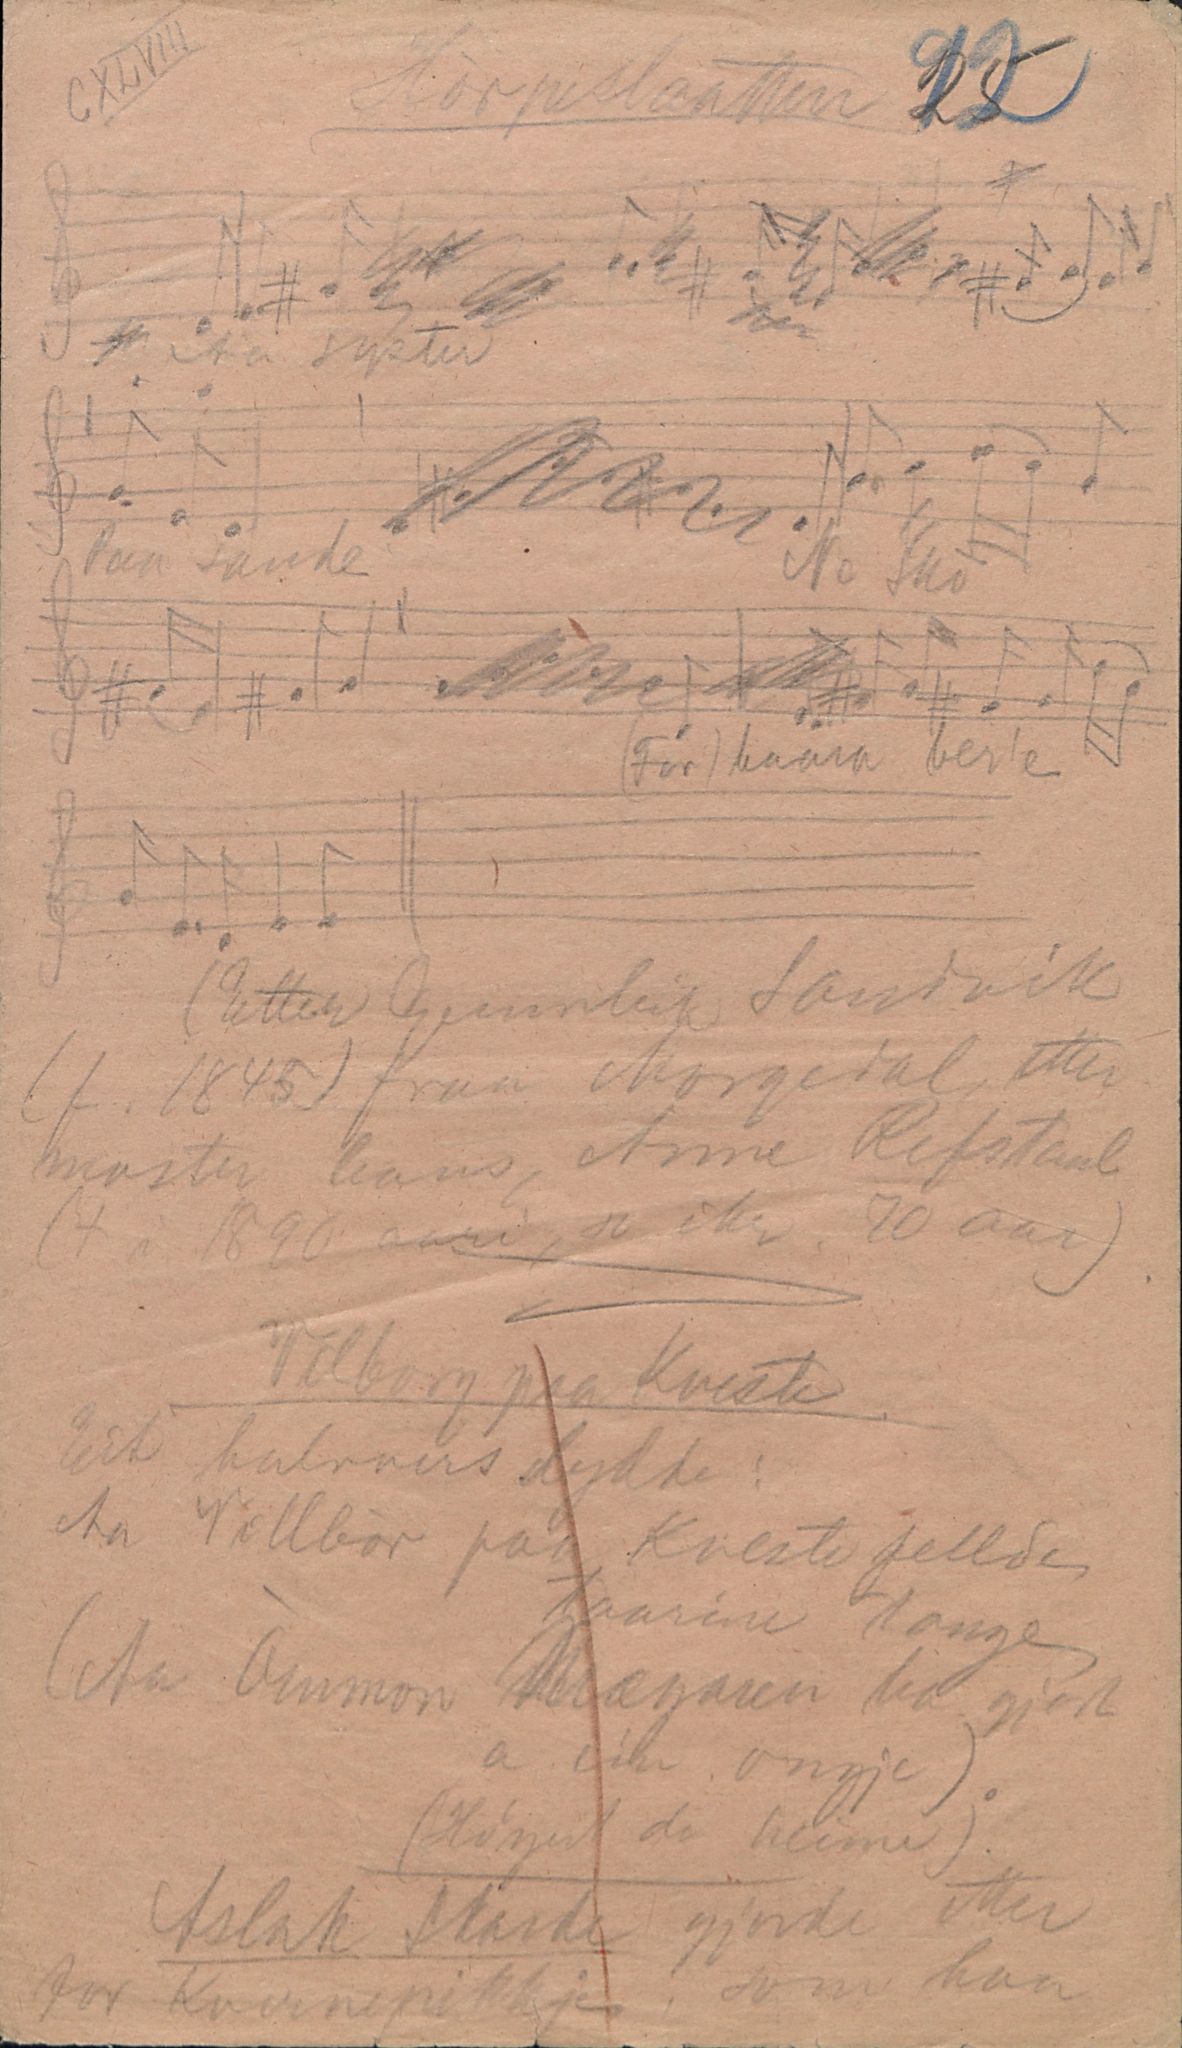 CXLVIII
Hörpeslaatten 25
Aa syster
Paa sande
No sko
(For) baara ber'e
(Etter Gunnleik Sandvik
(f. 1845) fraa Morgedal, etter
moster hans, Anne Refstaul
(† i 1890 aari, so ikr. 70 aar)
Vilborg paa Kveste.
Eit halvvers lydde:
Aa Villbór paa Kveste fellde
taarine tonge
(Aa Òmmon ha gjort
a ein ongje).
(Höyrt de heime).
Aslak gjorde etter
Tor som haa